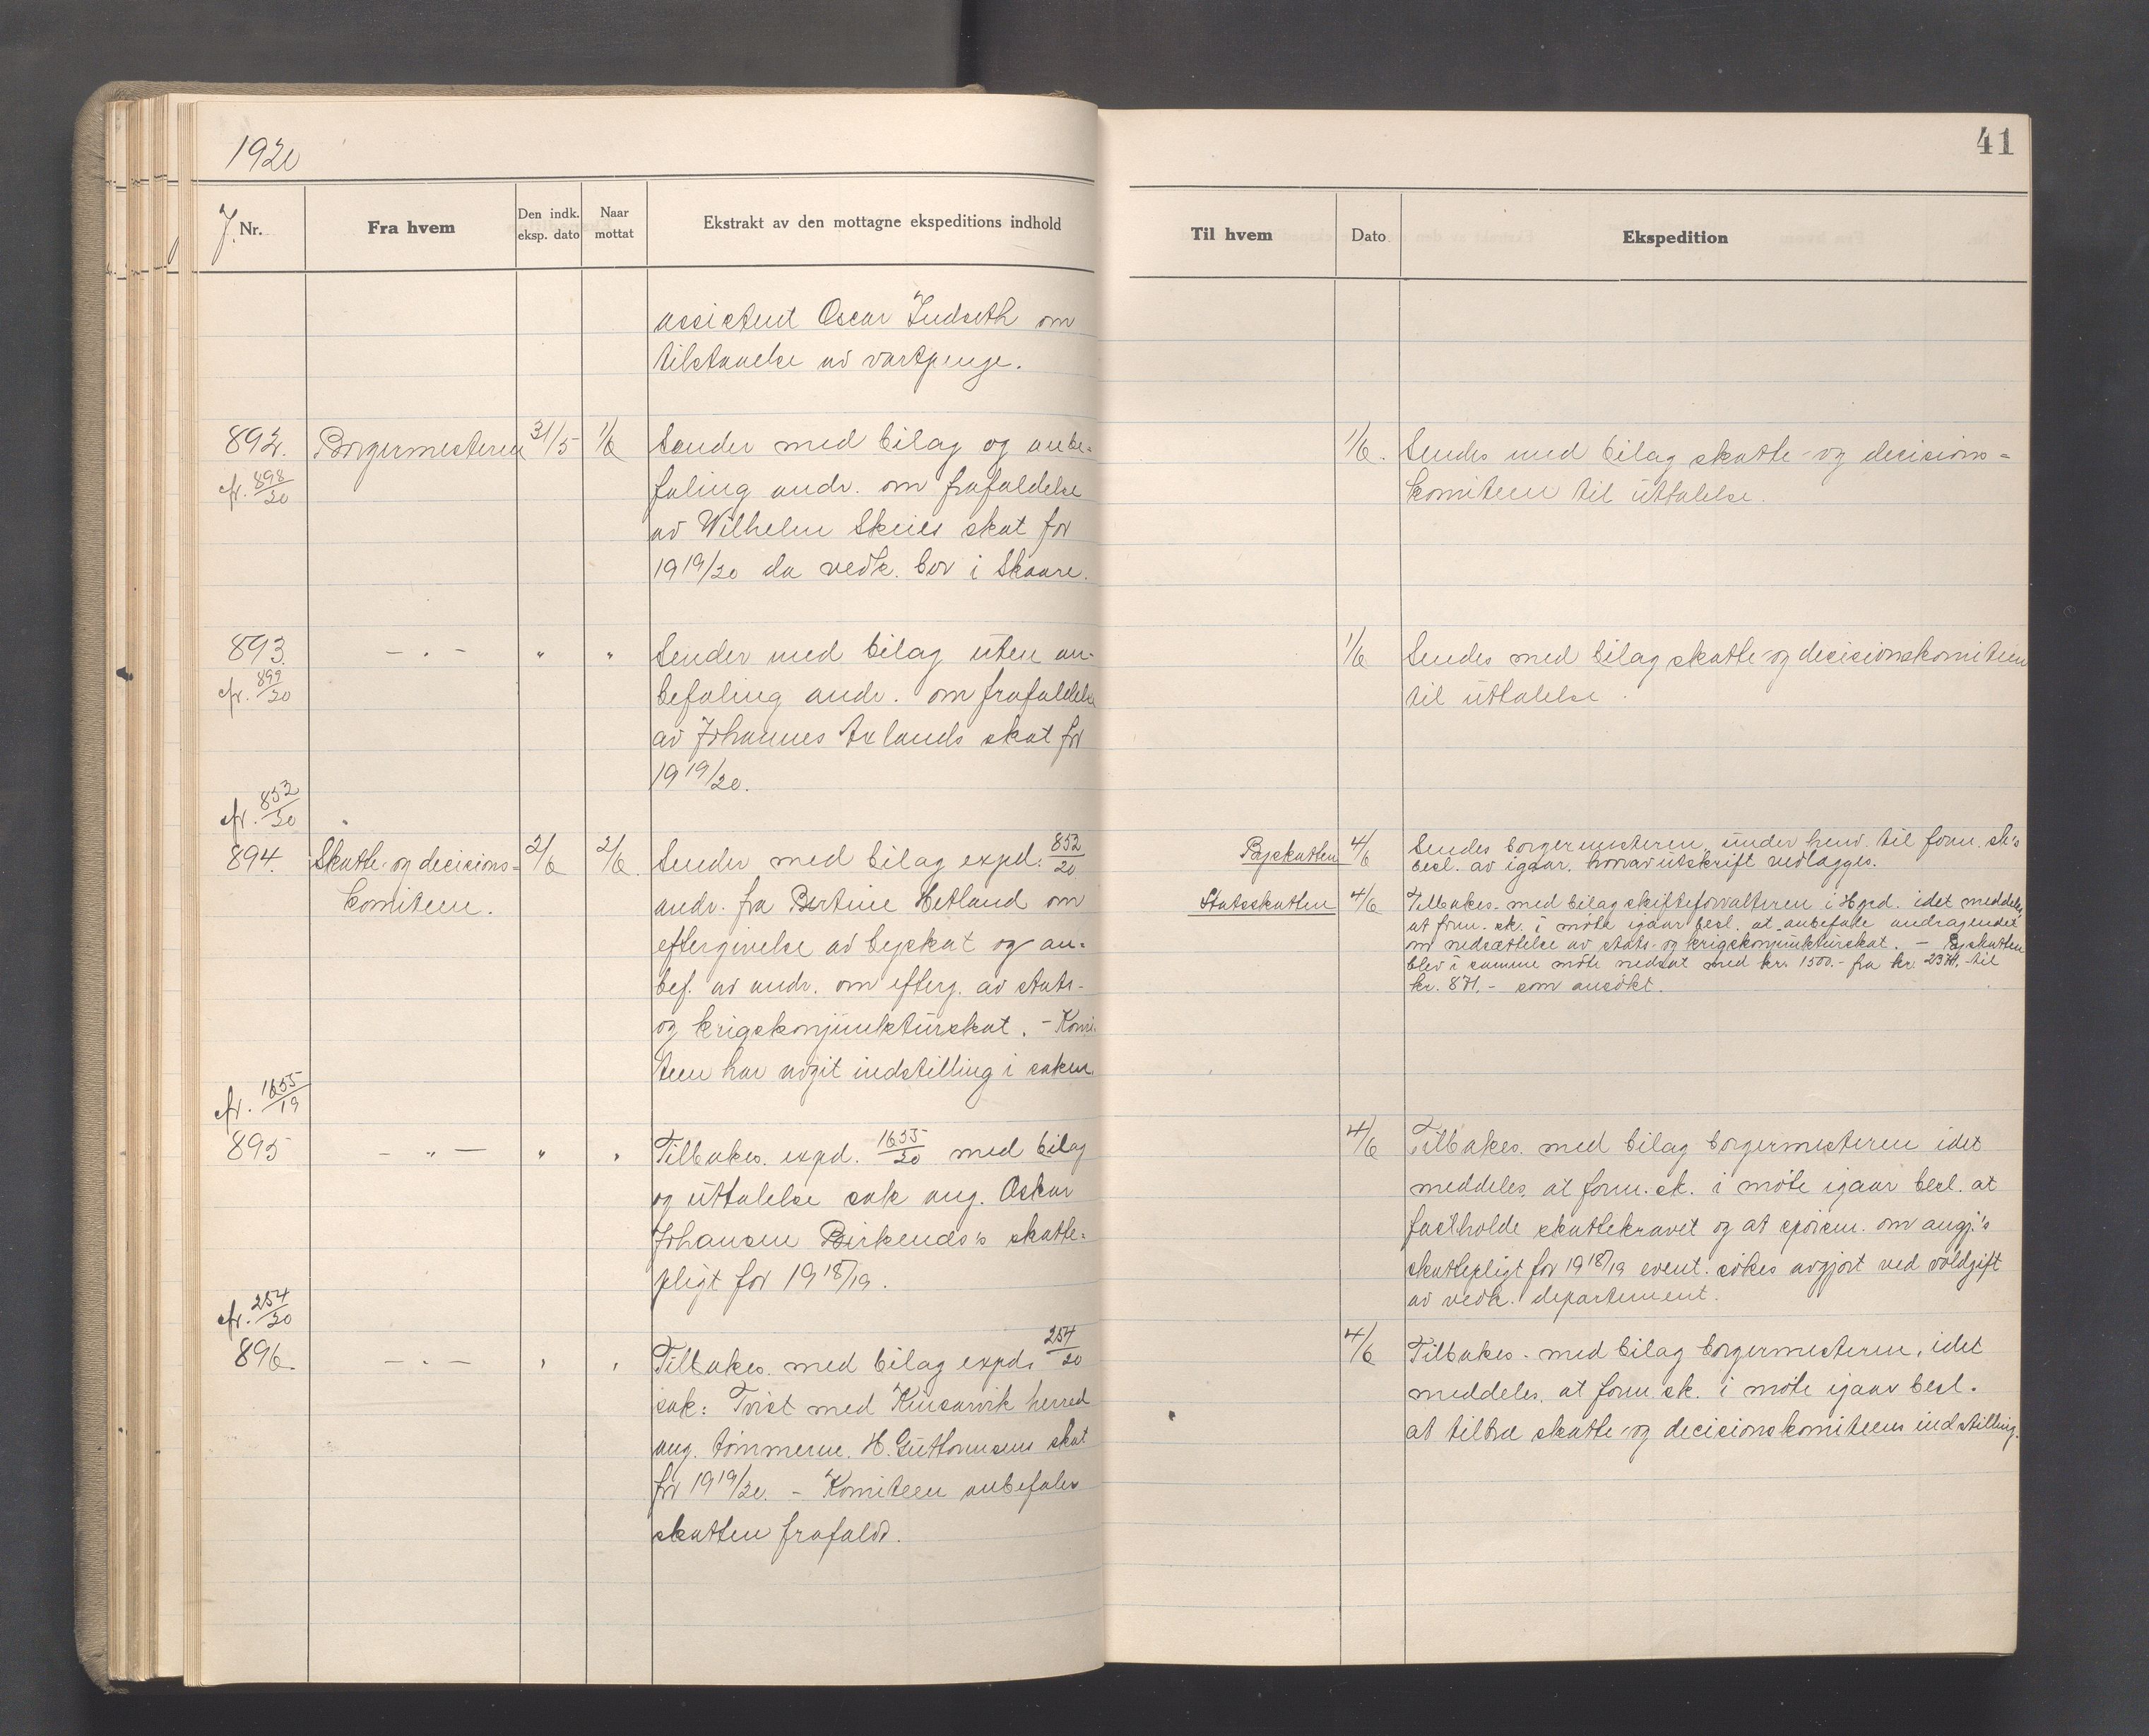 1920
41
J. Nr.
Fra hvem
Den indk. eksp. dato
Naar mottat
Ekstrakt av den mottagne ekspeditions indhold
Til hvem
Dato
Ekspedition
assistent Oscar Indseth om
tilstaaelse av vartpenge.
892.
cfr. 898/20
Borgermesteren
31/5
1/6
Sender med bilag og anbe-
faling andr. om frafaldelse
av Wilhelm Skeies skat for
1919/20 da vedk. bor i Skaare.
1/6.
Sendes med bilag skatte- og decisions-
komiteen til uttalelse.
893.
cfr. 899/20
- " -
"
"
Sender med bilag uten an-
befaling andr. om frafaldelse
av Johannes Aulands skat for
1919/20.
1/6
Sendes med bilag skatte- og decisionskomiteen
til uttalelse.
cfr. 852/20
894.
Skatte- og decisions-
komiteen.
2/6
2/6.
Sender med bilag expd. 852/20
andr. fra Bertine Hetland om
eftergivelse av byskat og an-
bef. av andr. om efterg. av stats-
og krigskonjunkturskat. - Komi-
teen har avgit indstilling i saken.
Byskatten
4/6
Sendes borgermesteren under henv. til form.sk's
besl. av igaar, hvorav utskrift vedlægges.
Statsskatten
4/6
Tilbakes. med bilag skifteforvalteren i Hgsd. idet meddeles
at form.sk. i møte igaar besl. at anbefale andragendet
om nedsættelse av stats- og krigskonjunkturskat. - Byskatten
blev i samme møte nedsat med kr. 1500.- fra kr. 2371.- til
kr. 871.- som ansøkt.
cfr. 1655/19
895
- " -
"
"
Tilbakes. expd. 1655/20 med bilag
og uttalelse sak ang. Oskar
Johansen Birkends's skatte-
pligt for 1918/19.
4/6
Tilbakes. med bilag borgermesteren idet
meddeles at form.sk. i møte igaar besl. at
fastholde skattekravet og at spörsm. om angj.'s
skattepligt for 1918/19 event. søkes avgjort ved voldgift
av vedk. departement.
cfr. 254/20
896.
- " -
"
"
Tilbakes. med bilag expd. 254/20
sak: Tvist med Kinsarvik herred
ang. tømmerm. H. Guttormsens skat
for 1919/20. - Komiteen anbefaler
skatten frafaldt.
4/6
Tilbakes. med bilag borgermesteren, idet
meddeles, at form.sk. i møte igaar besl.
at tiltræ skatte- og decisionskomiteens indstilling.